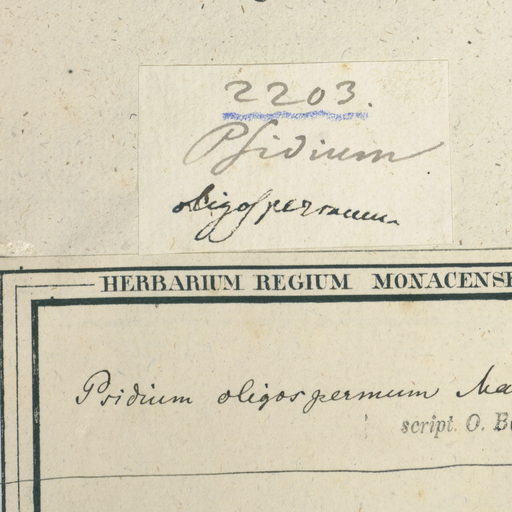 2203.
Psidium
oligospermum
HERBARIUM REGIUM MONACENSE
Psidium oligospermum Ma
script. O. Be